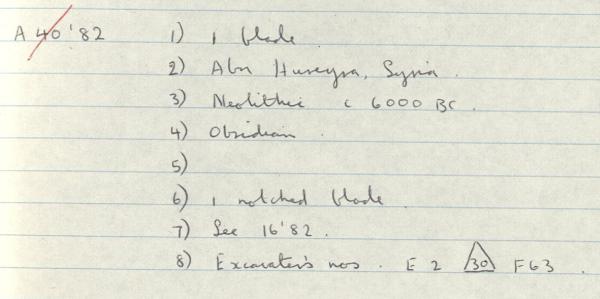 A 40'82 1) 1 blade
2) Abu Hureyra, Syria.
3) Neolithic c 6000 BC.
4) Obsidian.
5)
6) 1 notched blade.
7) See 16'82.
8) Excavator's nos. E 2 30 F63